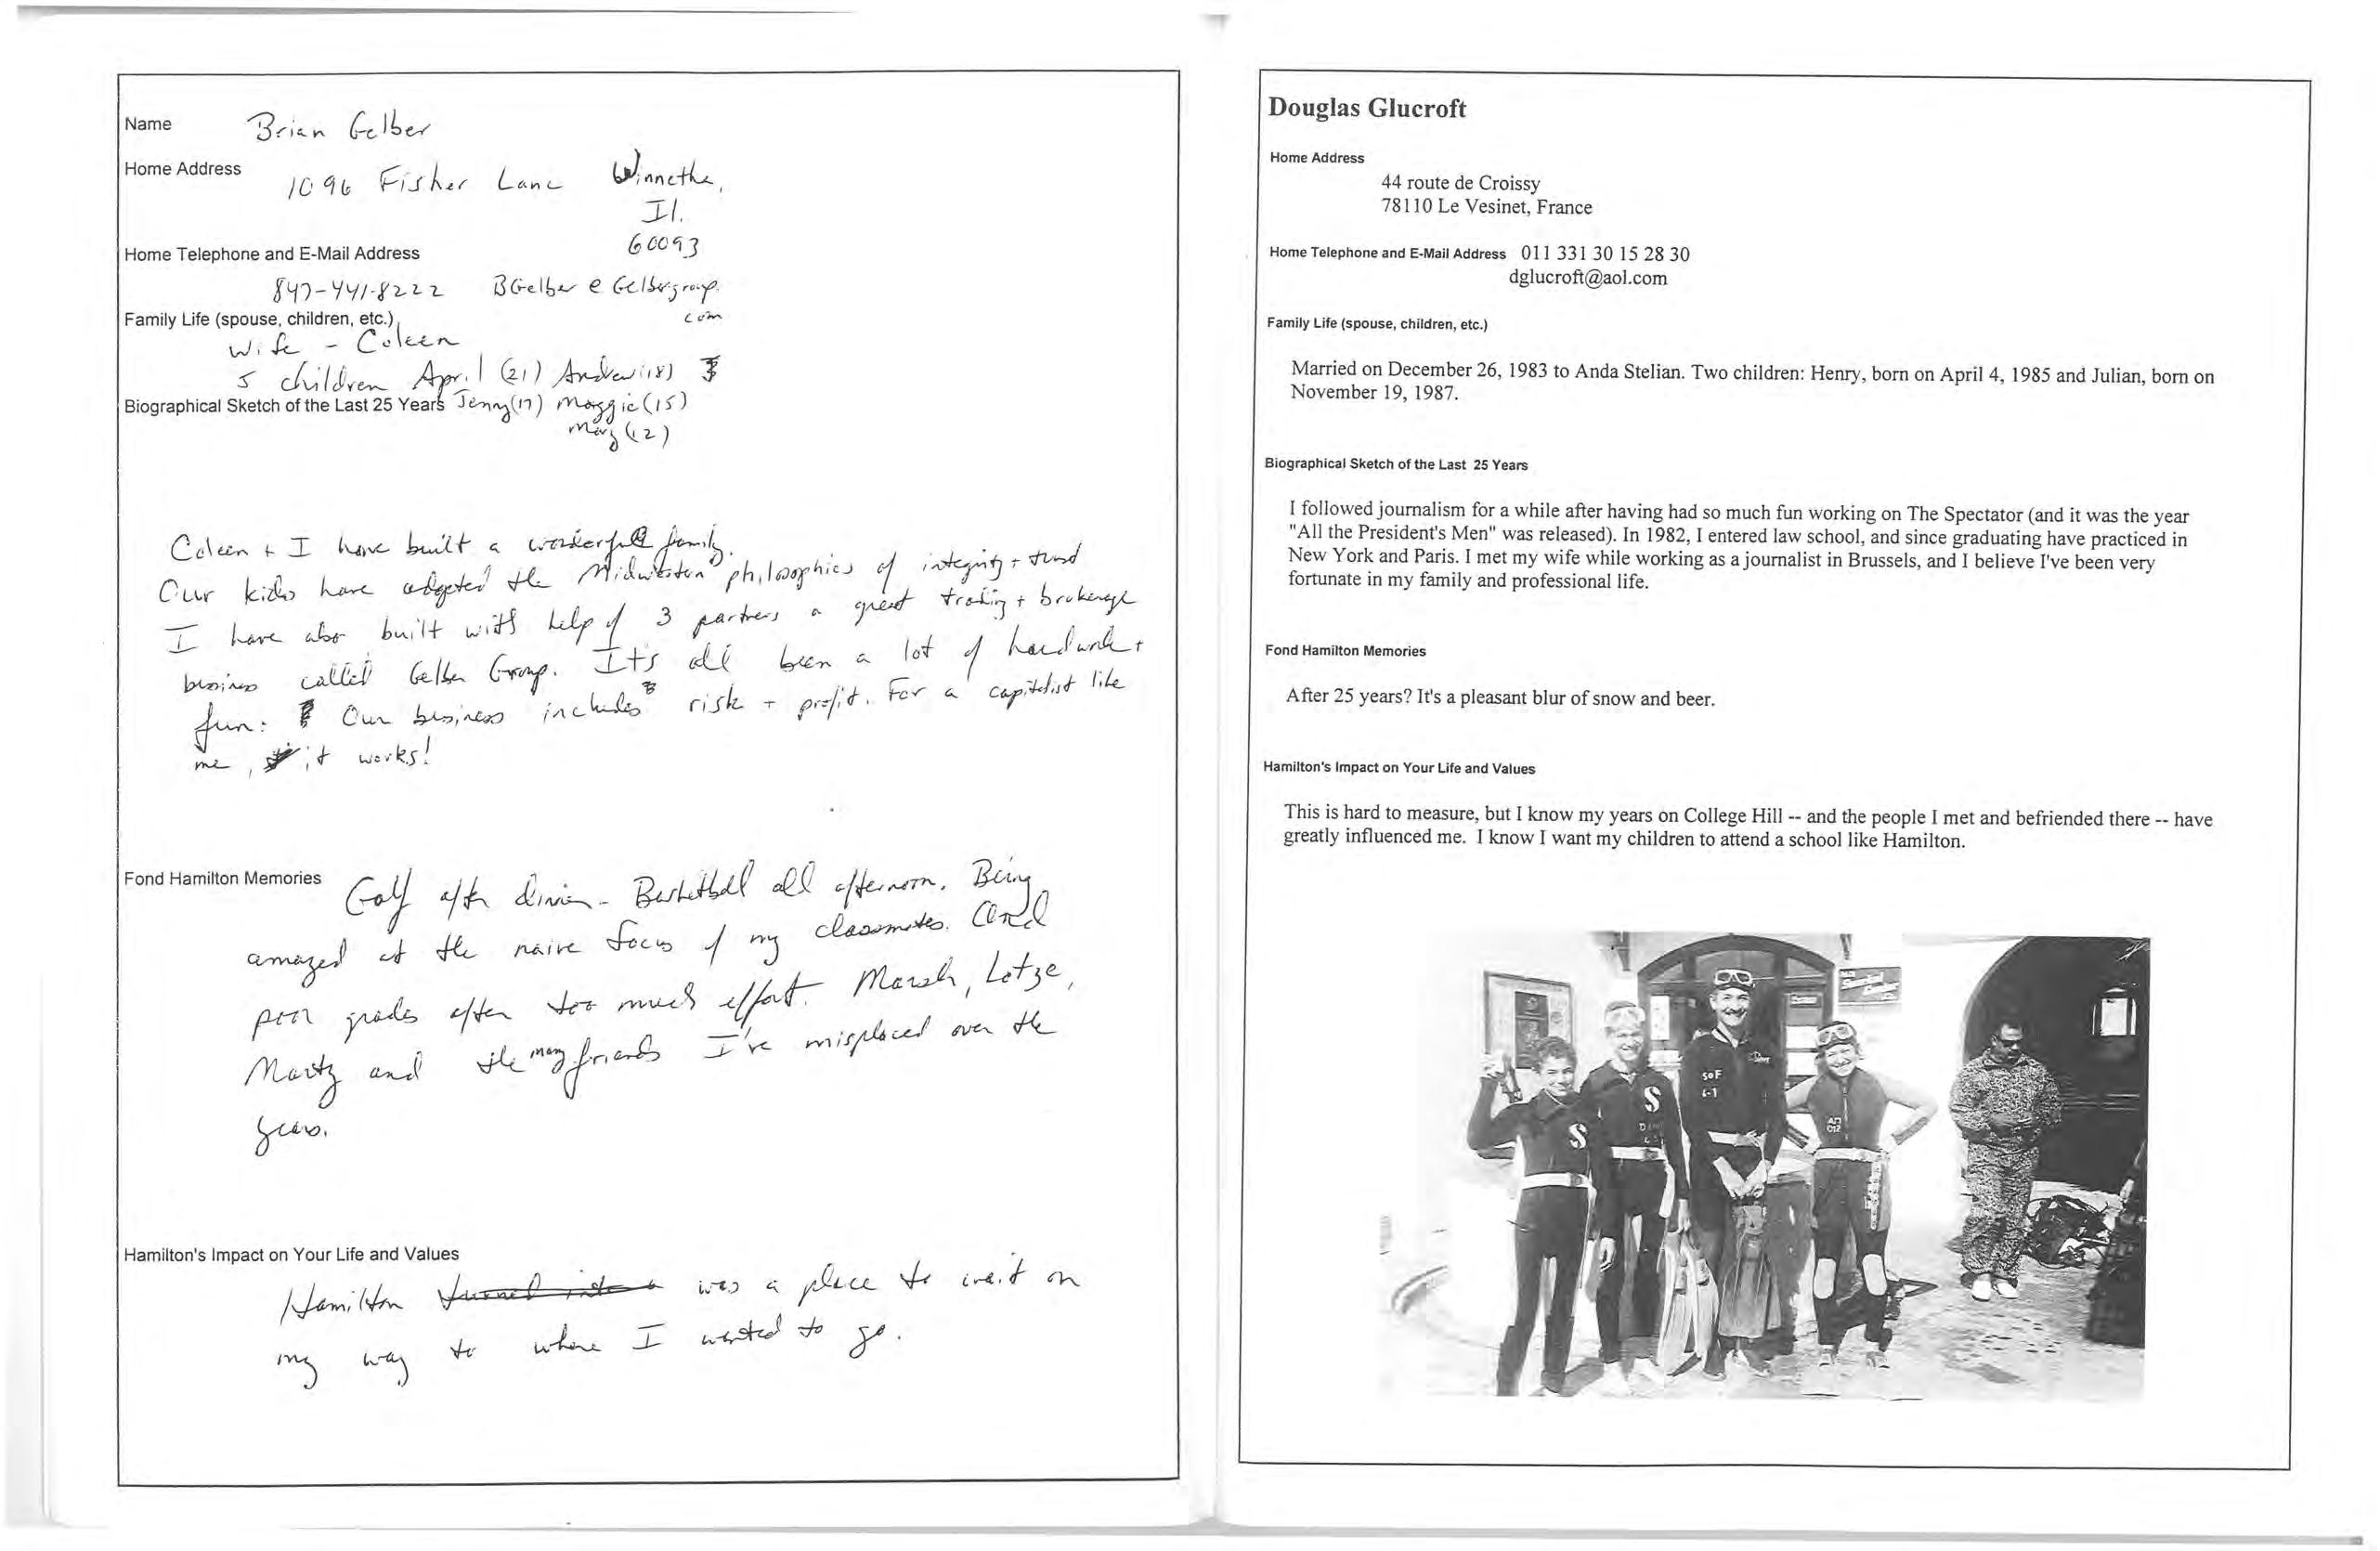 Name Brian Gelber
Home Address 1096 Fisher Lane Winnetka,
Il.
60093
Home Telephone and E-Mail Address
847-441-8222 BGelber @ Gelbergroup.
com
Family Life (spouse, children, etc.)
Wife - Coleen
5 children April (21) Andrew (18)
Biographical Sketch of the Last 25 Years Jenny (17) Maggie (15)
Mary (12)
Coleen + I have built a wonderful family.
Our kids have adopted the Midwestern philosophies of integrity +
I have also built with help of 3 partners a great trading + brokerage
business called Gelber Group. It's all been a lot of hard work +
fun. Our business includes risk + profit. For a capitalist like
me, it works!
Fond Hamilton Memories Golf after dinner - Basketball all afternoon. Being
amazed at the naive focus of my classmates. And
poor grades after too much effort. Marsh, Lotze,
Martz and the many friends I've misplaced over the
years.
Hamilton's Impact on Your Life and Values
Hamilton turned into a was a place to wait on
my way to where I wanted to go.
Douglas Glucroft
Home Address
44 route de Croissy
78110 Le Vesinet, France
Home Telephone and E-Mail Address 011 331 30 15 28 30
dglucroft@aol.com
Family Life (spouse, children, etc.)
Married on December 26, 1983 to Anda Stelian. Two children: Henry, born on April 4, 1985 and Julian, born on
November 19, 1987.
Biographical Sketch of the Last 25 Years
I followed journalism for a while after having had so much fun working on The Spectator (and it was the year
"All the President's Men" was released). In 1982, I entered law school, and since graduating have practiced in
New York and Paris. I met my wife while working as a journalist in Brussels, and I believe I've been very
fortunate in my family and professional life.
Fond Hamilton Memories
After 25 years? It's a pleasant blur of snow and beer.
Hamilton's Impact on Your Life and Values
This is hard to measure, but I know my years on College Hill -- and the people I met and befriended there -- have
greatly influenced me. I know I want my children to attend a school like Hamilton.
S
S